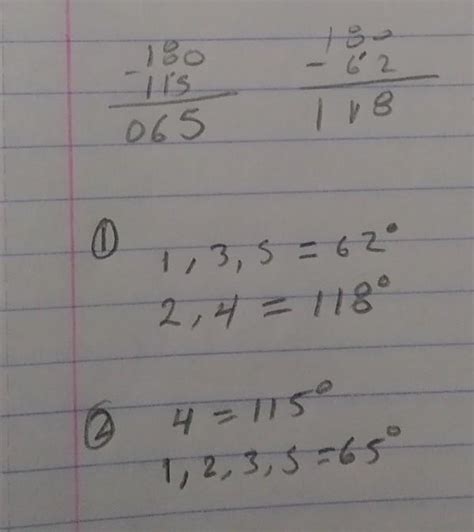 180
- 115
065
180
- 62
118
① 1, 3, 5 = 62°
2, 4 = 118°
② 4 = 115°
1, 2, 3, 5 = 65°